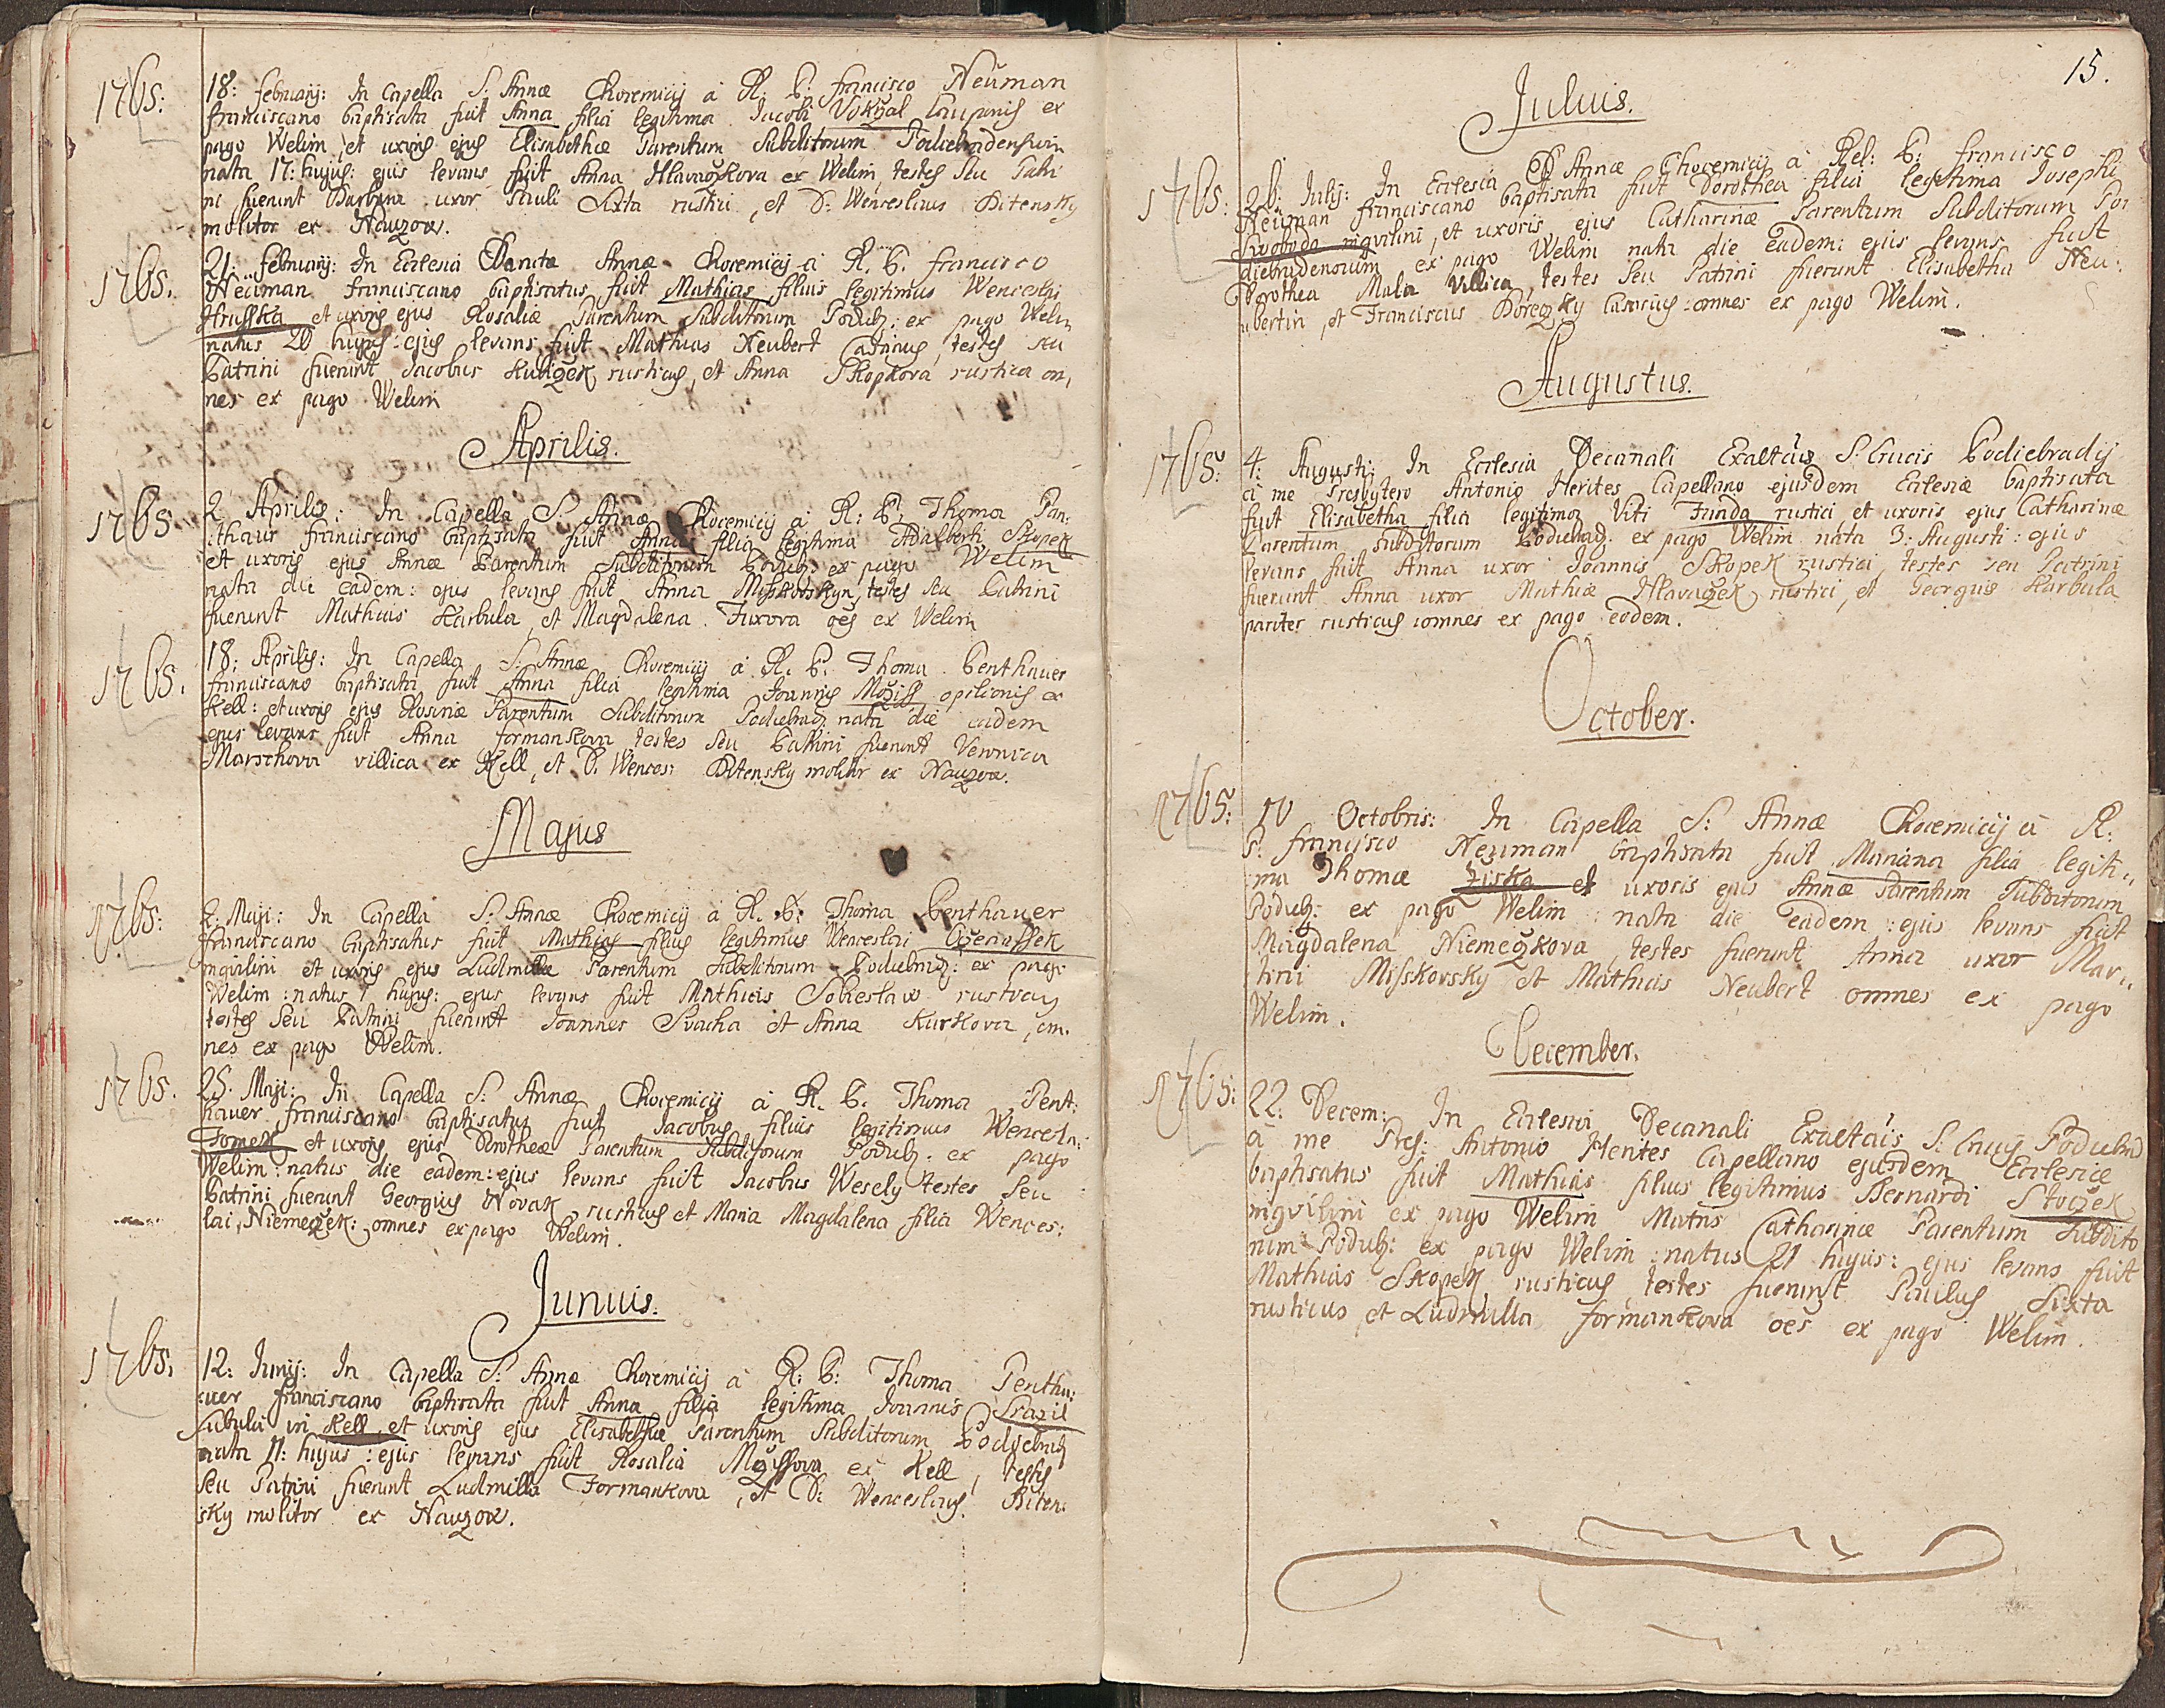 1765:
18: februarij: In Capella S: Annæ Chocemicij à R. P. francisco Neuman
franciscano baptisata fuit Anna filia legitima Jacobi Vokřal Cauponis ex
pago Welim, et uxoris ejus Elisabethæ Parentum Subditorum Podiebradensium
nata 17: hujus: ejus levans fuit Anna Hlavaczkova ex Welim, testes seu Patri
ni fuerunt Barbara uxor Pauli Sixta rustici, et D: Wenceslaus Bitensky
molitor ex Nauzow.
1765.
21. februarij: In Ecclesia Sanctæ Annæ Chocemicij à R. P. francisco
Neuman franciscano baptisatus fuit Mathias filius legitimus Wenceslai
Hrusska et uxoris ejus Rosaliæ Parentum Subditorum Podieb: ex pago Welim
natus 20 hujus: ejus levans fuit Mathias Neubert Casarius, testes seu
Patrini fuerunt Jacobus Kubiczek rusticus, et Anna Skopkova rustica om,
nes ex pago Welim
Aprilis.
1765
2 Aprilis: In Capella S: Annæ Chocemicij à R: P. Thoma Pan:
:thaur franciscano baptisata fuit Anna filia legitima Adalberti Skopek
et uxoris ejus Annæ Parentum Subditorum Podieb: ex pago Welim
nata die eadem: ejus levans fuit Anna Misskovskyn, testes seu Patrini
fuerunt Mathias Karbula, et Magdalena Fuxova oēs ex Welim
1765.
18: Aprilis: In Capella S: Annæ Chocemicij à R. P. Thoma Penthauer
franciscano baptisata fuit Anna filia legitima Joannis opilionis ex
Kell: et uxoris ejus Rosinæ Parentum Subditorum Podiebrad: nata die eadem
ejus levans fuit Anna formankova testes seu Patrini fuerunt Veronica
Marschova villica ex Kell, et D. Wences: Bitensky molitor ex Nauzow.
Majus
1765:
2. Maji: In Capella S: Annæ Chocemicij à R. P: Thoma Penthauer
franciscano baptisatus fuit Mathias filius legitimus Wenceslai Oczenassek
inqvilini et uxoris ejus Ludmillæ Parentum Subditorum Podiebrad: ex pago
Welim: natus 1 hujus: ejus levans fuit Mathias Sobieslaw rusticus
testes seu Patrini fuerunt Joannes Svacha et Anna Kurkova, om.
nes ex pago Welim.
1765.
25. Maji: In Capella S: Annæ Chocemicij à R. P. Thoma Pent:
hauer franciscano baptisatus fuit Jacobus filius legitimus Wencesla:
Tomek et uxoris ejus Dorotheæ Parentum Subditorum Podieb: ex pago
Welim: natus die eadem: ejus levans fuit Jacobus Wesely testes seu
Patrini fuerunt Georgius Novak rusticus et Maria Magdalena filia Wences:
lai Niemeczek: omnes ex pago Welim.
Junius.
1765.
12: Junij: In Capella S: Annæ Chocemicij à R: P: Thoma Pentha:
:uer franciscano baptisata fuit Anna filia legitima Joannis Prazil
Subului in Kell, et uxoris ejus Elisabethæ Parentum Subditorum Podiebrad
nata 11: hujus: ejus levans fuit Rosalia ex Kell, testes
seu Patrini fuerunt Ludmilla Formankova, et D: Wenceslaus Biten:
sky molitor ex Nauzow.
15.
Julius.
1765:
26: Julij: In Ecclesia S Annæ Chocemicij à Rel: P: francisco
Neuman franciscano baptisata fuit Dorothea filia legitima Josephi
Swoboda inqvilini, et uxoris ejus Catharinæ Parentum Subditorum Po:
diebradensium ex pago Welim nata die eadem: ejus levans fuit
Dorothea Mala villica, testes seu Patrini fuerunt Elisabetha Neu:
ubertin, et Franciscus Boreczky Casarius: omnes ex pago Welim.
Augustus.
1765:
4: Augusti: In Ecclesia Decanali Exaltāis S: Crucis Podiebradij
à me Presbytero Antonio Herites Capellano ejusdem Ecclesiæ baptisata
fuit Elisabetha filia legitima Viti Funda rustici et uxoris ejus Catharinæ
Parentum Subditorum Podiebrad: ex pago Welim nata 3: Augusti: ejus
levans fuit Anna uxor Joannis Skopek rustici, testes seu Patrini
fuerunt Anna uxor Mathiæ Hlavaczek rustici, et Georgius Karbula
pariter rusticus: omnes ex pago eodem.
October.
1765:
10 Octobris: In Capella S: Annæ Chocemicij à R:
P. francisco Neuman baptisata fuit Mariana filia legiti„
ma Thomæ Ziska et uxoris ejus Annæ Parentum Subditorum
Podieb: ex pago Welim: nata die eadem: ejus levans fuit
Magdalena Niemeczkova, testes fuerunt Anna uxor Mar„
tini Misskovsky et Mathias Neubert omnes ex pago
Welim.
December.
1765:
22: Decem: In Ecclesia Decanali Exaltāis S: Crucis Podiebrad
à me Pres: Antonio Herites Capellano ejusdem Ecclesiæ
baptisatus fuit Mathias filius legitimus Bernardi Stoczek
inqvilini ex pago Welim Matris Catharinæ Parentum Subdito
rum Podieb: ex pago Welim: natus 21 hujus: ejus levans fuit
Mathias Skopek rusticus, testes fuerunt Paulus Sixta
rusticus, et Ludmilla formankova oēs ex pago Welim.